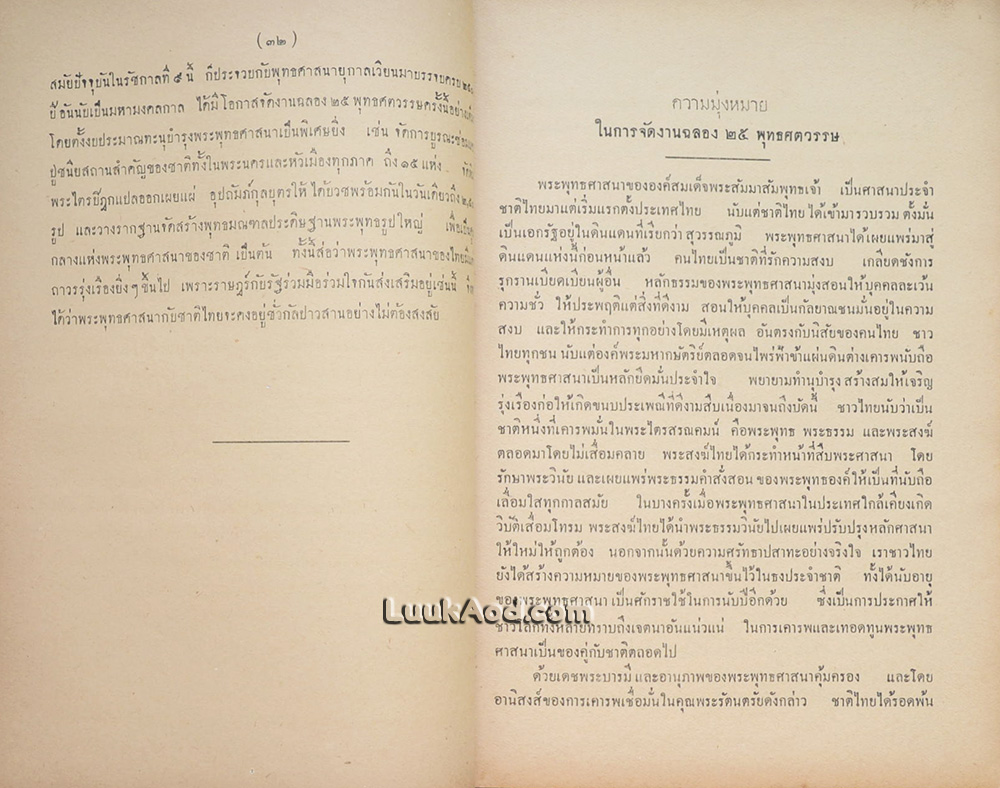 (๓๒)
สมัยปัจจุบันในรัชกาลที่ ๙ นี้ ก็ประจวบกับพุทธศาสนายุกาลเวียนมาบรรจบครบ
ปี อันนับเป็นมหามงคลกาล ได้มีโอกาสจัดงานฉลอง ๒๕ พุทธศตวรรษครั้งนี้อย่าง
โดยตั้งงบประมาณทะนุบำรุงพระพุทธศาสนาเป็นพิเศษยิ่ง เช่น จัดการบูรณะซ่อม
ปูชนียสถานสำคัญของชาติทั้งในพระนครและหัวเมืองทุกภาค ถึง ๑๕ แห่ง
พระไตรปิฎกแปลออกเผยแผ่ อุปถัมภ์กุลบุตรให้ ได้บวชพร้อมกันในวันเดียวถึง
รูป และวางรากฐานจัดสร้างพุทธมณฑลประดิษฐานพระพุทธรูปใหญ่ เพื่อเป็น
กลางแห่งพระพุทธศาสนาของชาติ เป็นต้น ทั้งนี้ส่อว่าพระพุทธศาสนาของไทย
ถาวรรุ่งเรืองยิ่งๆ ขึ้นไป เพราะราษฎร์กับรัฐร่วมมือร่วมใจกันส่งเสริมอยู่เช่นนี้
ได้ว่าพระพุทธศาสนากับชาติไทยจะคงอยู่ชั่วกัลปาวสานอย่างไม่ต้องสงสัย
ความมุ่งหมาย
ในการจัดงานฉลอง ๒๕ พุทธศตวรรษ
พระพุทธศาสนาขององค์สมเด็จพระสัมมาสัมพุทธเจ้า เป็นศาสนาประจำ
ชาติไทยมาแต่เริ่มแรกตั้งประเทศไทย นับแต่ชาติไทย ได้เข้ามารวบรวม ตั้งมั่น
เป็นเอกรัฐอยู่ในดินแดนที่เรียกว่า สุวรรณภูมิ พระพุทธศาสนาได้เผยแพร่มาสู่
ดินแดนแห่งนี้ก่อนหน้าแล้ว คนไทยเป็นชาติที่รักความสงบ เกลียดชังการ
รุกรานเบียดเบียนผู้อื่น หลักธรรมของพระพุทธศาสนามุ่งสอนให้บุคคลละเว้น
ความชั่ว ให้ประพฤติแต่สิ่งที่ดีงาม สอนให้บุคคลเป็นกัลยาณชนมั่นอยู่ในความ
สงบ และให้กระทำการทุกอย่างโดยมีเหตุผล อันตรงกับนิสัยของคนไทย ชาว
ไทยทุกชน นับแต่องค์พระมหากษัตริย์ตลอดจนไพร่ฟ้าข้าแผ่นดินต่างเคารพนับถือ
พระพุทธศาสนาเป็นหลักยึดมั่นประจำใจ พยายามทำนุบำรุง สร้างสมให้เจริญ
รุ่งเรืองก่อให้เกิดขนบประเพณีที่ดีงามสืบเนื่องมาจนถึงบัดนี้ ชาวไทยนับว่าเป็น
ชาติหนึ่งที่เคารพมั่นในพระไตรสรณคมน์ คือพระพุทธ พระธรรม และพระสงฆ์
ตลอดมาโดยไม่เสื่อมคลาย พระสงฆ์ไทยได้กระทำหน้าที่สืบพระศาสนา โดย
รักษาพระวินัย และเผยแพร่พระธรรมคำสั่งสอน ของพระพุทธองค์ให้เป็นที่นับถือ
เลื่อมใสทุกกาลสมัย ในบางครั้งเมื่อพระพุทธศาสนาในประเทศใกล้เคียงเกิด
วิบัติเสื่อมโทรม พระสงฆ์ไทยได้นำพระธรรมวินัยไปเผยแพร่ปรับปรุงหลักศาสนา
ให้ใหม่ให้ถูกต้อง นอกจากนั้นด้วยความศรัทธาปสาทะอย่างจริงใจ เราชาวไทย
ยังได้สร้างความหมายของพระพุทธศาสนาขึ้นไว้ในธงประจำชาติ ทั้งได้นับอายุ
ของพระพุทธศาสนา เป็นศักราชใช้ในการนับปีอีกด้วย ซึ่งเป็นการประกาศให้
LuukAod.com
ชาวโลกทั้งหลายทราบถึงเจตนาอันแน่วแน่ ในการเคารพและเทอดทูนพระพุทธ
ศาสนาเป็นของคู่กับชาติตลอดไป
ด้วยเดชพระบารมี และอานุภาพของพระพุทธศาสนาคุ้มครอง และโดย
อานิสงส์ของการเคารพเชื่อมั่นในคุณพระรัตนตรัยดังกล่าว ชาติไทยได้รอดพ้น